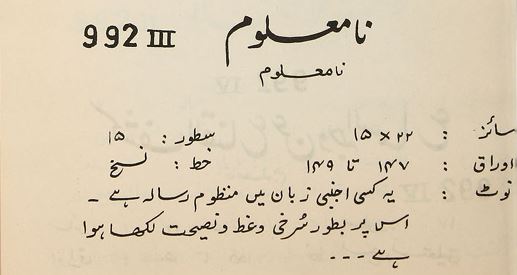 992 III نامعلوم
نامعلوم
سائز : ۲۲ × ۱۵ سطور : ۱۵
اوراق : ۱۴۷ تا ۱۴۹ خط : نسخ
نوٹ : یہ کسی اجنبی زبان میں منظوم رسالہ ہے ۔
اس پر بطور سُرخی وغط ونصیحت لکھا ہوا
ہے ۔ ۔ ۔